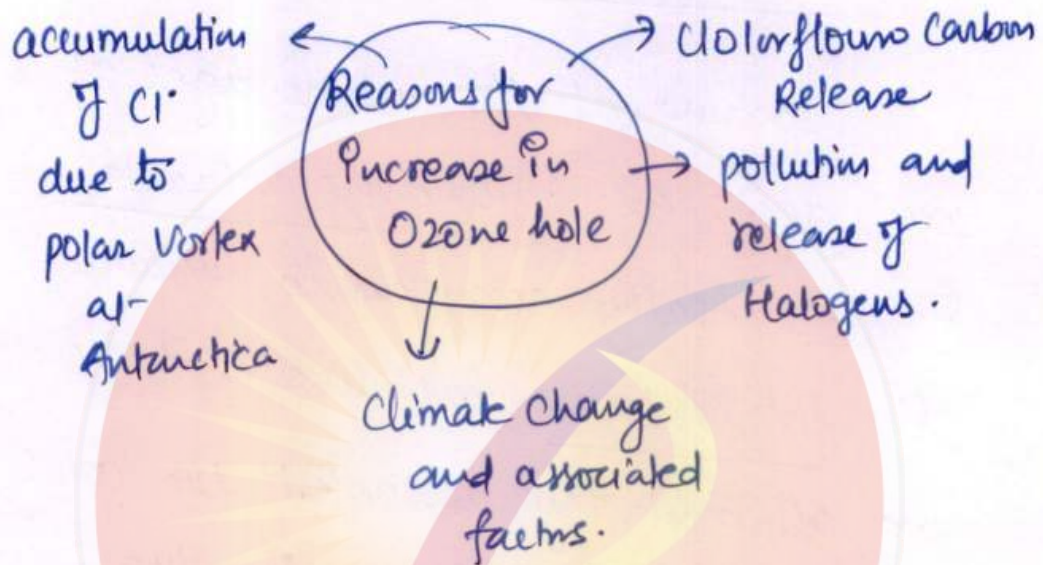 Reasons for
Increase in
Ozone hole
accumulation
of Cl·
due to
polar Vortex
at
Antarctica
Clolorflouro Carbon
Release
pollution and
release of
Halogens.
Climate Change
and associated
factors.